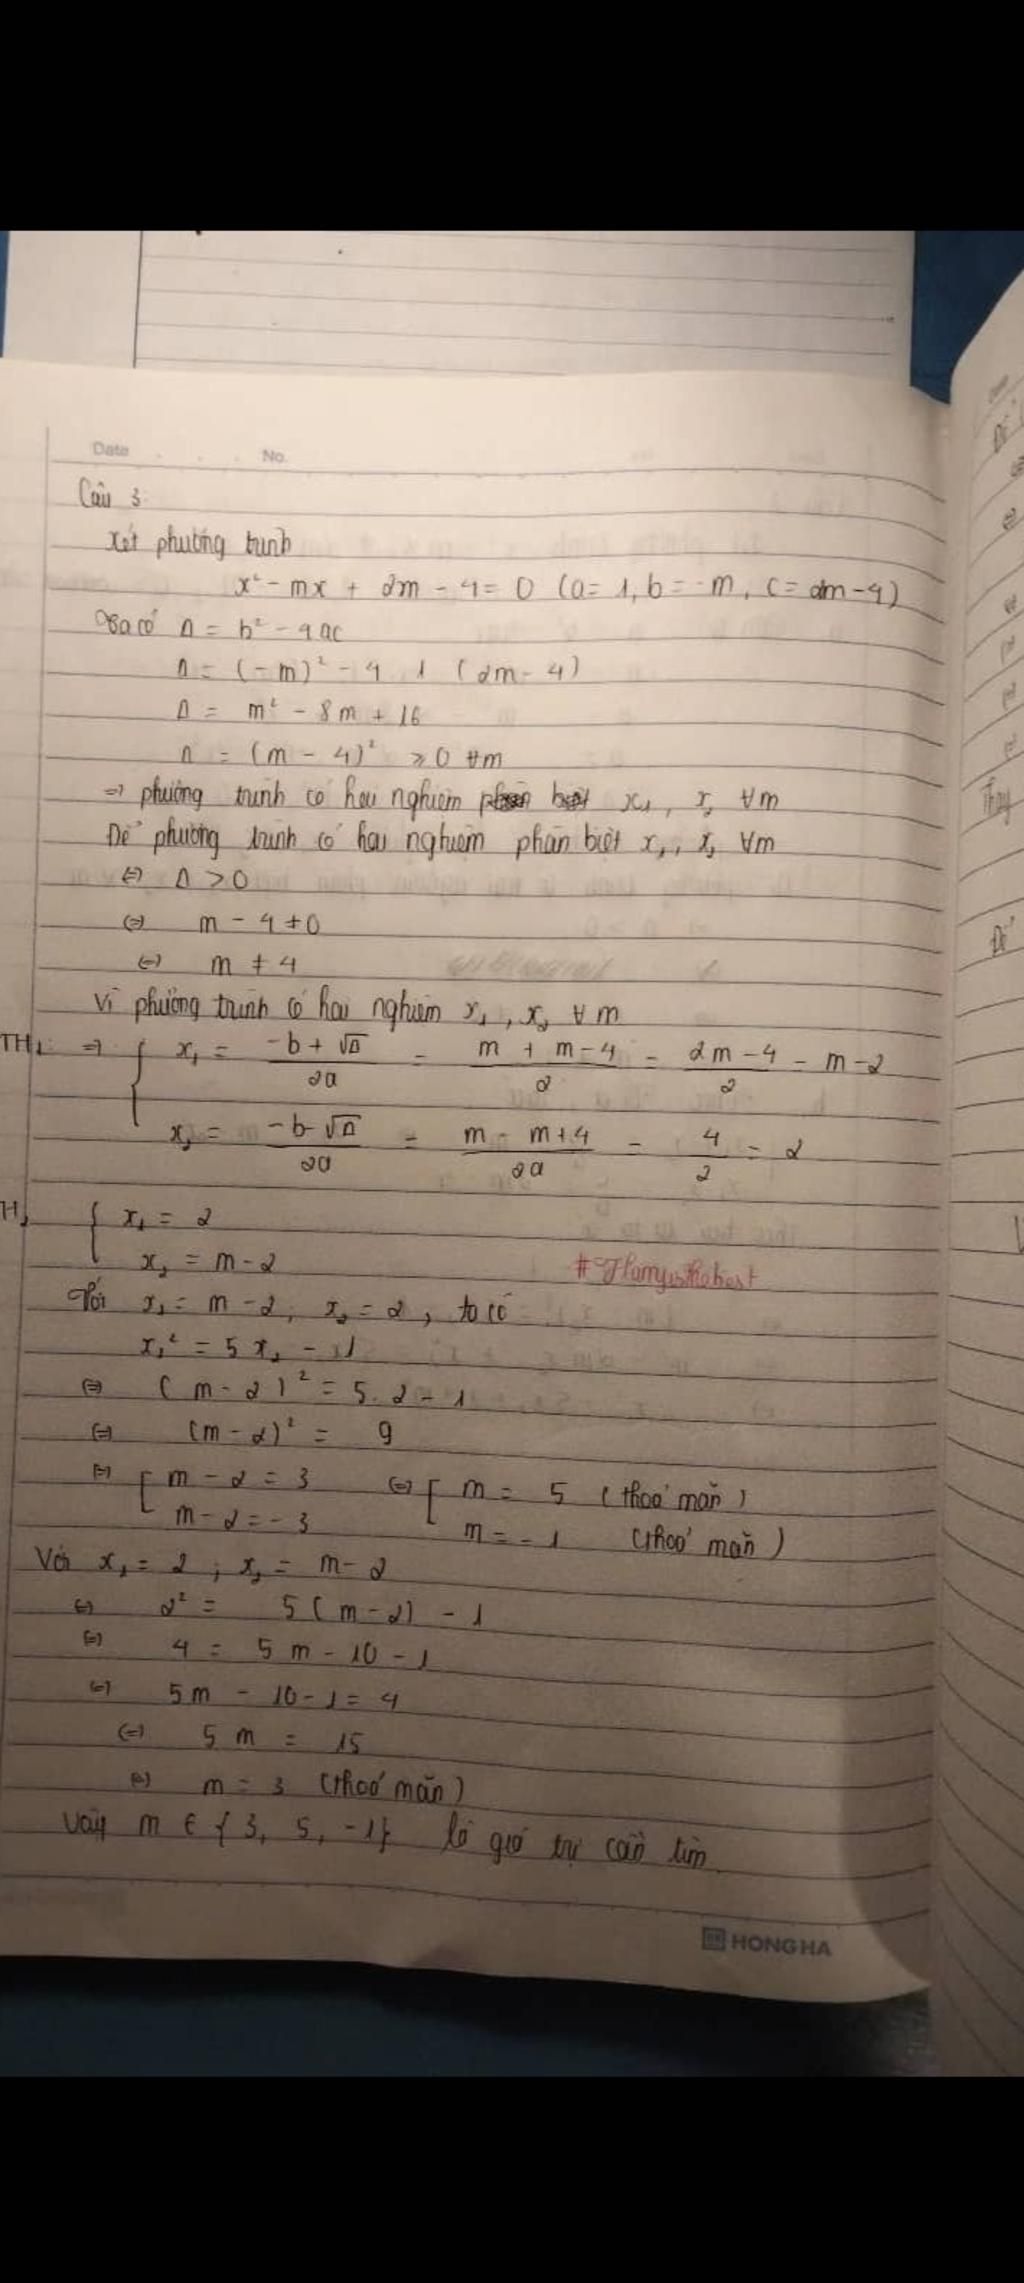 Date No.
Câu 3
Xét phương trình
x² - mx + 2m - 4 = 0 (a = 1, b = -m, c = 2m - 4)
Ta có Δ = b² - 4ac
Δ = (-m)² - 4 1 (2m - 4)
Δ = m² - 8m + 16
Δ = (m - 4)² ≥ 0 ∀m
=> phương trình có hai nghiệm x₁, x₂ ∀m
Để phương trình có hai nghiệm phân biệt x₁, x₂ ∀m
<=> Δ > 0
<=> m - 4 ≠ 0
<=> m ≠ 4
Vì phương trình có hai nghiệm x₁, x₂ ∀m
TH₁ => { x₁ = (-b + √Δ)/2a = (m + m - 4)/2 = (2m - 4)/2 = m - 2
x₂ = (-b - √Δ)/2a = (m - m + 4)/2a = 4/2 = 2
{ x₁ = 2
x₂ = m - 2
Với x₁ = m - 2, x₂ = 2, ta có
x₁² = 5x₂ - 1
<=> (m - 2)² = 5.2 - 1
<=> (m - 2)² = 9
<=> [ m - 2 = 3 <=> [ m = 5 (thoả mãn)
m - 2 = -3 m = -1 (thoả mãn)
Với x₁ = 2 ; x₂ = m - 2
<=> 2² = 5(m - 2) - 1
<=> 4 = 5m - 10 - 1
<=> 5m - 10 - 1 = 4
<=> 5m = 15
<=> m = 3 (thoả mãn)
Vậy m ∈ {3, 5, -1} là giá trị cần tìm
HONG HA